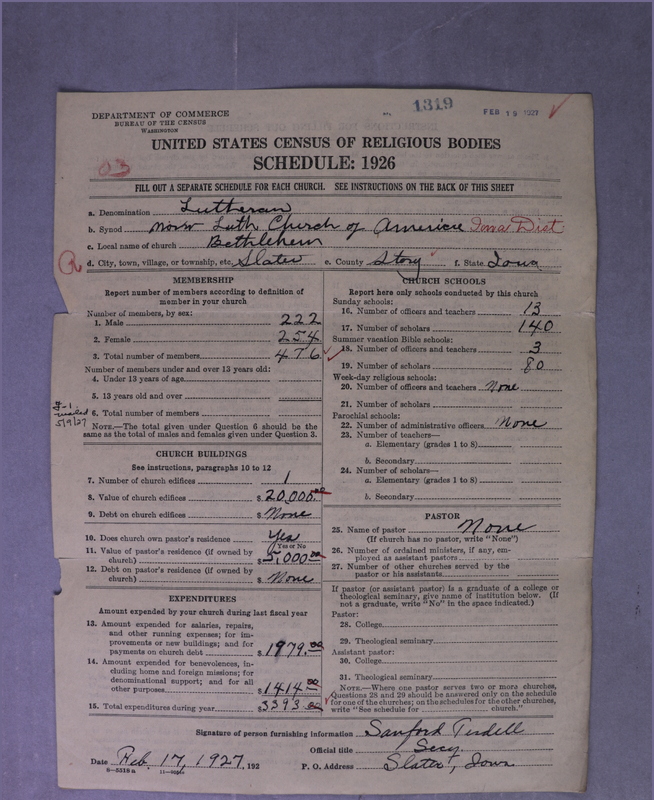 1319
FEB 19 1927
DEPARTMENT OF COMMERCE
BUREAU OF THE CENSUS
WASHINGTON
UNITED STATES CENSUS OF RELIGIOUS BODIES
03
SCHEDULE: 1926
FILL OUT A SEPARATE SCHEDULE FOR EACH CHURCH. SEE INSTRUCTIONS ON THE BACK OF THIS SHEET
a. Denomination Lutheran
b. Synod Norw Luth Church of America Iowa Dist
c. Local name of church Bethlehem
d. City, town, village, or township, etc. Slater e. County Story f. State Iowa
MEMBERSHIP
Report number of members according to definition of
member in your church
Number of members, by sex:
1. Male 222
2. Female 254
3. Total number of members 476
Number of members under and over 13 years old:
4. Under 13 years of age
5. 13 years old and over
6. Total number of members
mailed
5/9/27
NOTE.—The total given under Question 6 should be
the same as the total of males and females given under Question 3.
CHURCH BUILDINGS
See instructions, paragraphs 10 to 12
7. Number of church edifices 1
8. Value of church edifices $20,000.00
9. Debt on church edifices $None
10. Does church own pastor's residence Yes
Yes or No
11. Value of pastor's residence (if owned by
church) $5,000.00
12. Debt on pastor's residence (if owned by
church) $None
EXPENDITURES
Amount expended by your church during last fiscal year
13. Amount expended for salaries, repairs,
and other running expenses; for im-
provements or new buildings; and for
payments on church debt $1979.00
14. Amount expended for benevolences, in-
cluding home and foreign missions; for
denominational support; and for all
other purposes $1414.00
15. Total expenditures during year $3393.00
CHURCH SCHOOLS
Report here only schools conducted by this church
Sunday schools:
16. Number of officers and teachers 13
17. Number of scholars 140
Summer vacation Bible schools:
18. Number of officers and teachers 3
19. Number of scholars 80
Week-day religious schools:
20. Number of officers and teachers None
21. Number of scholars
Parochial schools:
22. Number of administrative officers None
23. Number of teachers—
a. Elementary (grades 1 to 8)
b. Secondary
24. Number of scholars—
a. Elementary (grades 1 to 8)
b. Secondary
PASTOR
25. Name of pastor None
(If church has no pastor, write "None")
26. Number of ordained ministers, if any, em-
ployed as assistant pastors
27. Number of other churches served by the
pastor or his assistants
If pastor (or assistant pastor) is a graduate of a college or
theological seminary, give name of institution below. (If
not a graduate, write "No" in the space indicated.)
Pastor:
28. College
29. Theological seminary
Assistant pastor:
30. College
31. Theological seminary
NOTE.—Where one pastor serves two or more churches,
Questions 28 and 29 should be answered only on the schedule
for one of the churches; on the schedules for the other churches,
write "See schedule for church."
Signature of person furnishing information Sanford Tesdell
Official title Secy.
Date Feb. 17, 1927, 192
P. O. Address Slater, Iowa
8-5518 a